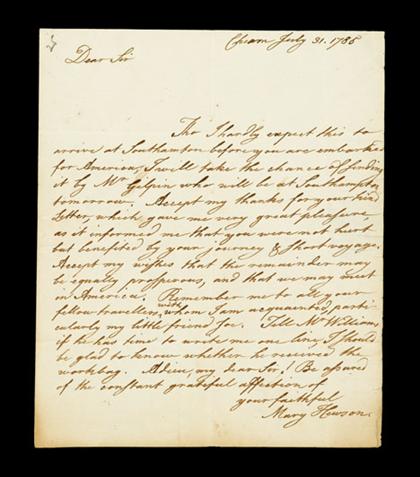 Cheam July 31. 1785
Dear Sir
Tho I hardly expect this to
arrive at Southampton before you are embarked
for America, I will take the chance of sending
it by Mr Gilpin who will be at Southampton
tomorrow. Accept my thanks for your kind
Letter, which gave me very great pleasure,
as it informed me that you were not hurt
but benefited by your journey & short voyage.
Accept my wishes that the remainder may
be equally prosperous, and that we may meet
in America. Remember me to all your
fellow travellers, with whom I am acquainted, parti
cularly my little friend Joe. Tell Mr Williams
if he has time to write me one line, I should
be glad to know whether he received the
workbag. Adieu, my dear Sir! Be assured
of the constant grateful affection of
your faithful
Mary Hewson.